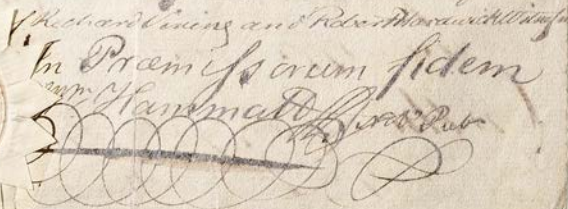 Richard Vining and Robert Hardwick Witnesses
In Præmissorum fidem
Wm. Hammatt
Not. Pub.